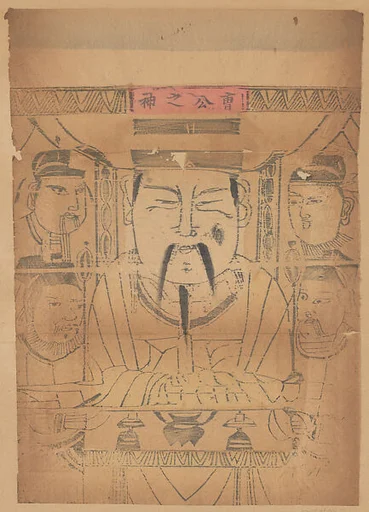 曹公之神